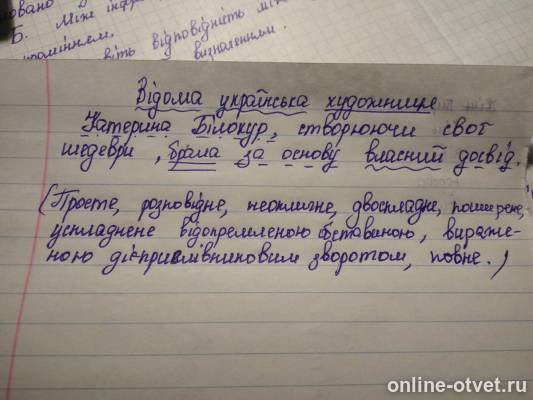 ловано в
Б. Між інфр
ромінням.
віть відповідність між
визначенням.
Відома українська художниця
Катерина Білокур, створюючи свої
шедеври, брала за основу власний досвід.
(Просте, розповідне, неоклична, двоскладне, поширене,
ускладнене відокремленою обставиною, вираже-
ною дієприслівниковим зворотом, повне.)
online-otvet.ru